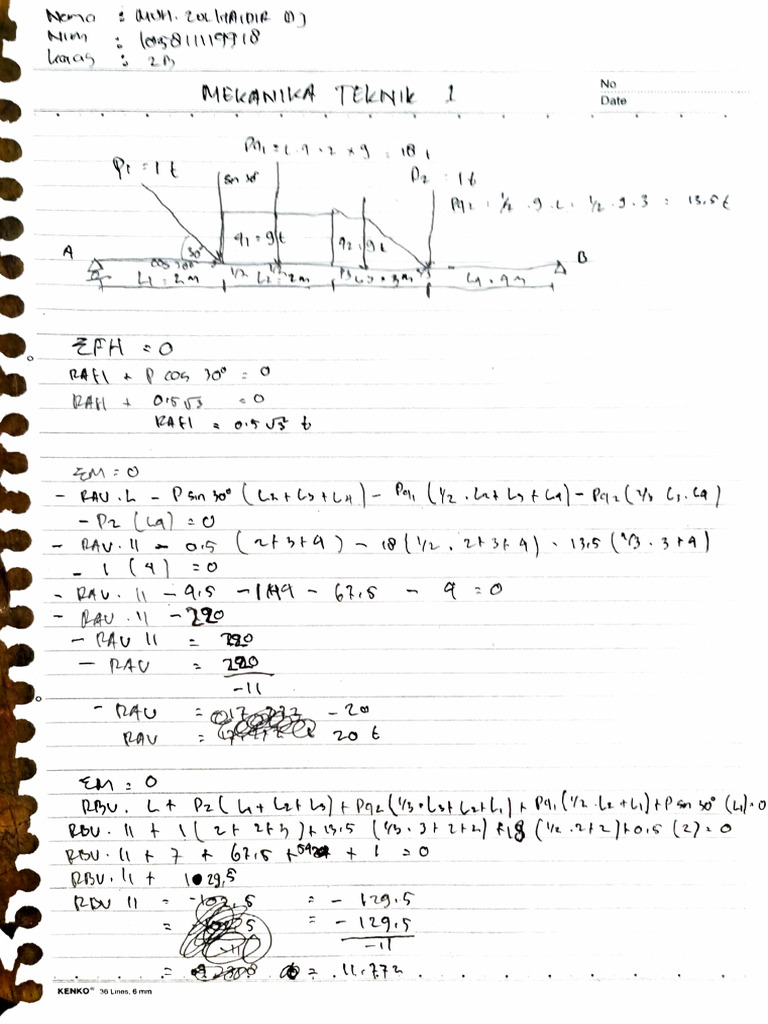 Nama :
Nim : 105811119918
Kelas : 2B
MEKANIKA TEKNIK 1
No
Date
Pq1 = L . q . 2 x 9 = 18 t
P1 = 1 t
sin 30°
P2 = 1 t
Pq2 = 1/2 . q . L = 1/2 . 9 . 3 = 13.5 t
A
30°
q1 = 9 t
q2 = 9 t
B
cos 30°
L1 = 2 m
1/2
L2 = 2 m
L3 = 3 m
L4 = 4 m
ΣFH = 0
RAH + P cos 30° = 0
RAH + 0.5 √3 = 0
RAH = 0.5 √3 t
ΣM = 0
- RAV . L - P sin 30° (L2 + L3 + L4) - Pq1 (1/2 . L2 + L3 + L4) - Pq2 (2/3 L3 . L4)
- P2 (L4) = 0
- RAV . 11 - 0.5 (2 + 3 + 4) - 18 (1/2 . 2 + 3 + 4) - 13.5 (2/3 . 3 + 4)
- 1 (4) = 0
- RAV . 11 - 4.5 - 144 - 67.5 - 4 = 0
- RAV . 11 - 220
- RAV 11 = 220
- RAV = 220
-11
- RAV = - 20
RAV = 20 t
ΣM = 0
RBV . L + P2 (L1 + L2 + L3) + Pq2 (1/3 . L3 + L2 + L1) + Pq1 (1/2 . L2 + L1) + P sin 30° (L1) = 0
RBV . 11 + 1 (2 + 2 + 3) + 13.5 (1/3 . 3 + 2 + 2) + 18 (1/2 . 2 + 2) + 0.5 (2) = 0
RBV . 11 + 7 + 67.5 + 54 + 1 = 0
RBV . 11 + 129.5
RBV 11 = - 129.5
= - 129.5
-11
= 11.772
KENKO® 36 Lines, 6 mm